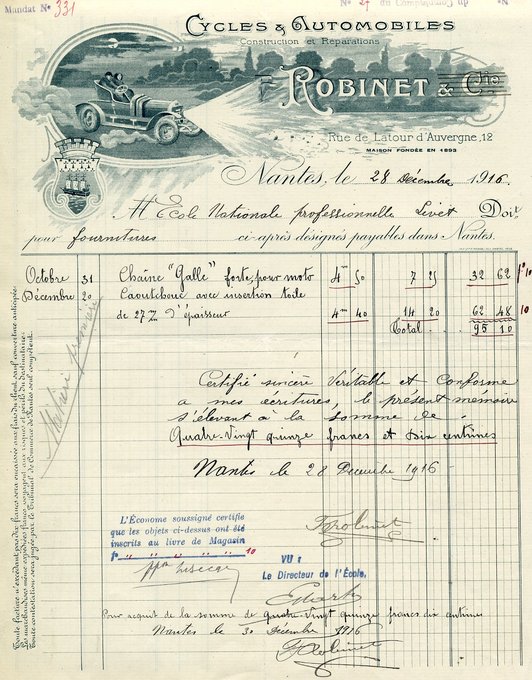 Mandat Nº 331
CYCLES & AUTOMOBILES
Construction et Réparations
F. ROBINET & Cie
Rue de Latour d'Auvergne, 12
MAISON FONDÉE EN 1893
Nantes, le 28 Décembre 1916
M École Nationale professionnelle Livet Doit
pour fournitures ci-après désignés payables dans Nantes.
Octobre 31 Chaîne "Galle" forte pour moto 4m 50 7 25 32 62 10
Décembre 20 Caoutchouc avec insertion toile
de 27 m/m d'épaisseur 4m 40 14 20 62 48 10
Total 95 10
Matière première
Certifié sincère Véritable et Conforme
a mes écritures, le présent mémoire
s'élevant à la somme de
Quatre-Vingt quinze francs et dix centimes
Nantes le 28 Décembre 1916
F Robinet
L'Économe soussigné certifie
que les objets ci-dessus ont été
inscrits au livre de Magasin
fº 10
VU :
Le Directeur de l'École,
Pour acquit de la somme de quatre-Vingt quinze francs dix centimes
Nantes le 30 Décembre 1916
F Robinet
Toute facture n'excédant pas
Toute contestation sera jugée par le Tribunal de Commerce de Nantes seul compétent.